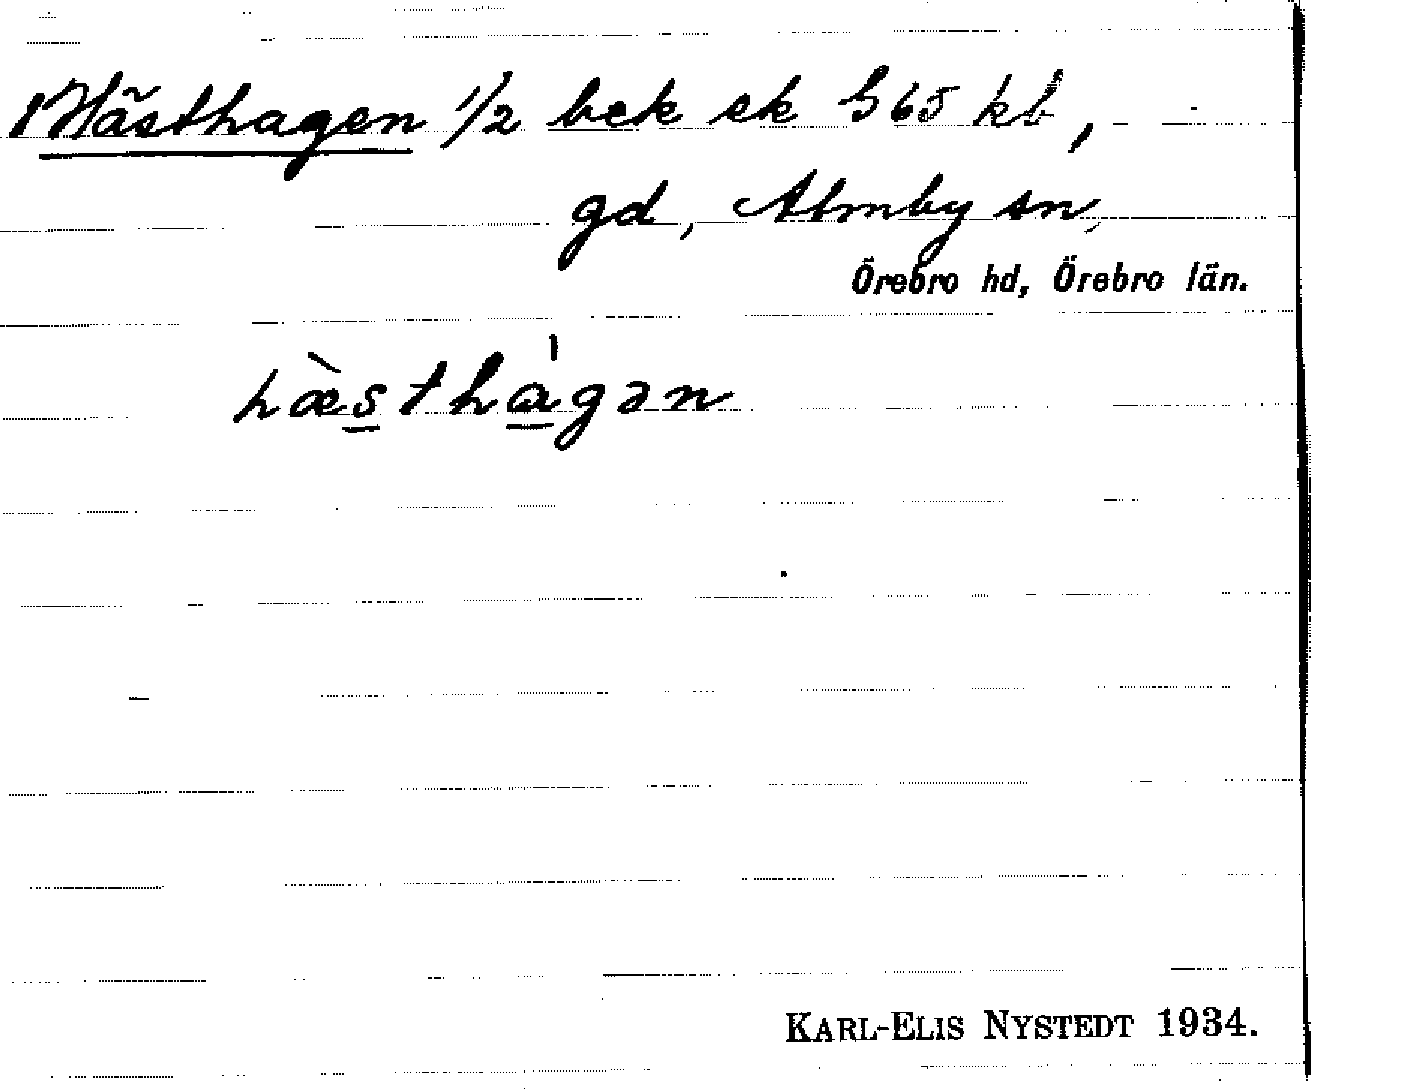 1 Hästhagen 1/2 bek ek G65 kb,
gd, Almby sn,
Örebro hd, Örebro län.
hæ̀sthágən
KARL-ELIS NYSTEDT 1934.